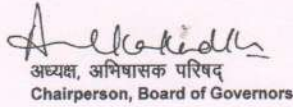 अध्यक्ष, अभिषासक परिषद्
Chairperson, Board of Governors